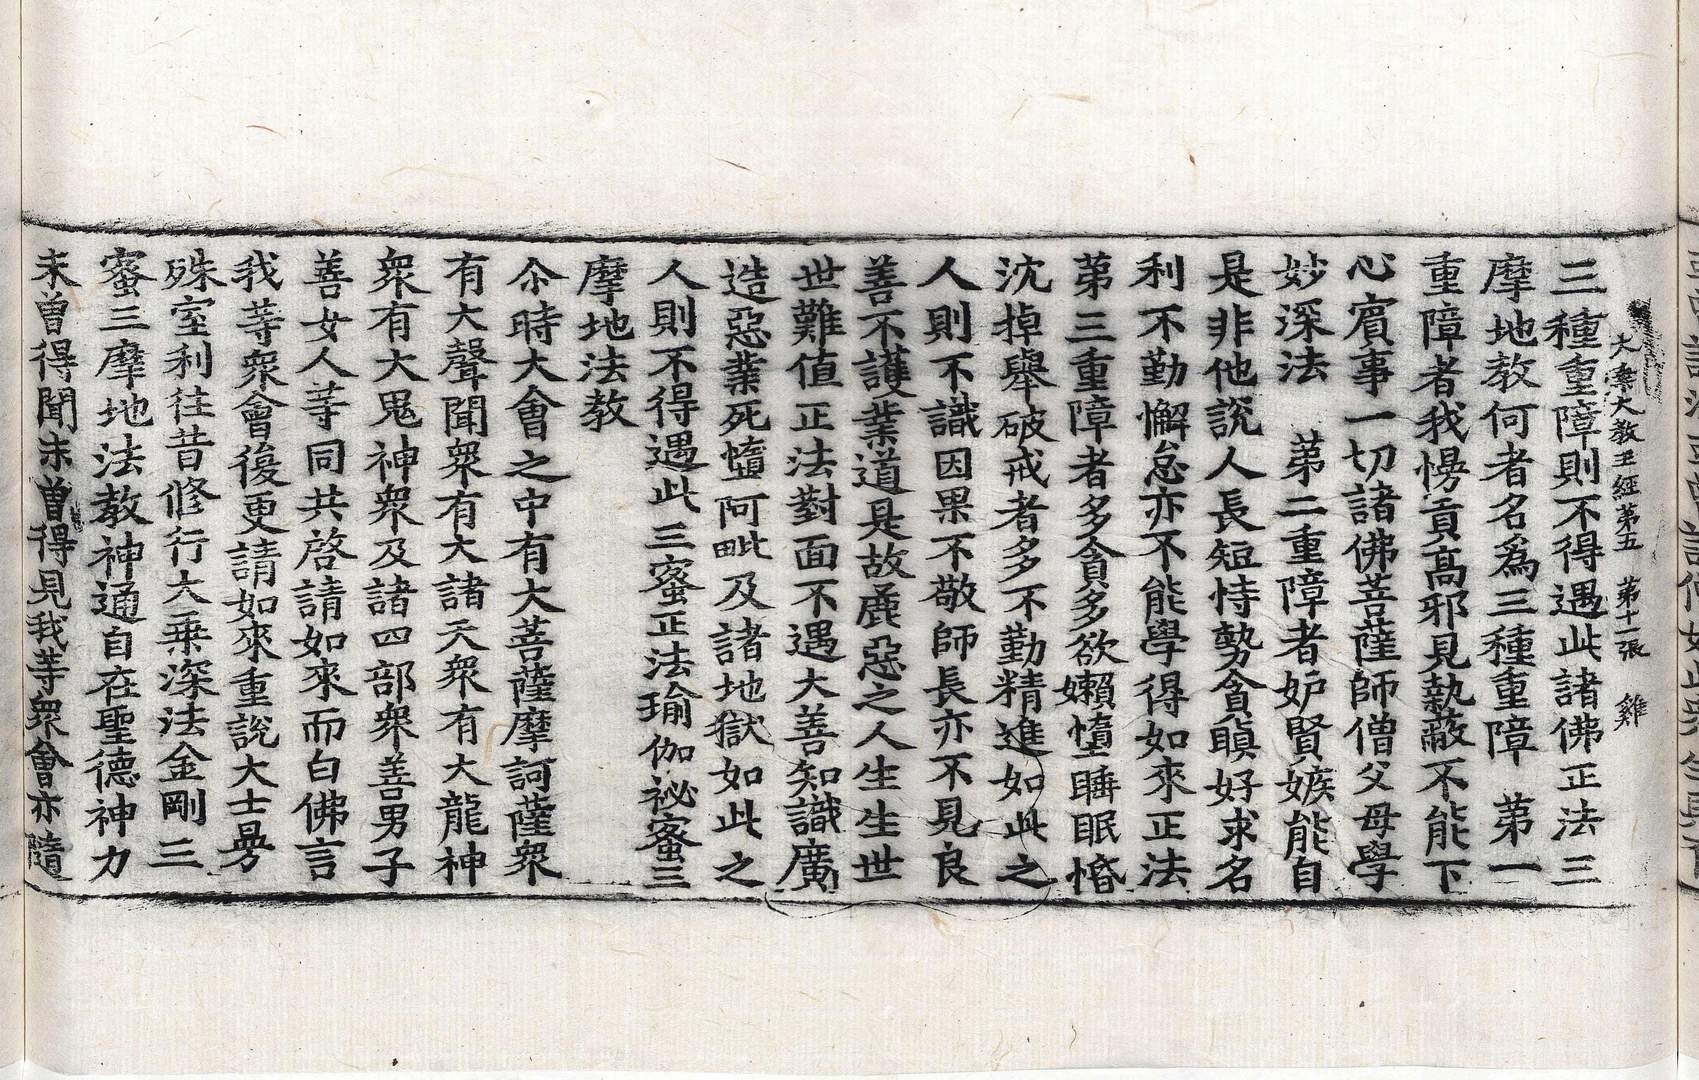 大乘大教王經第五　第十一張　雞
三種重障則不得遇此諸佛正法三
摩地教何者名爲三種重障　第一
重障者我慢貢高邪見執蔽不能下
心賓事一切諸佛菩薩師僧父母學
妙深法　第二重障者妒賢嫉能自
是非他說人長短恃勢貪瞋好求名
利不勤懈怠亦不能學得如來正法
第三重障者多貪多欲嬾墮睡眠惛
沈掉舉破戒者多不勤精進如此之
人則不識因果不敬師長亦不見良
善不護業道是故麁惡之人生生世
世難值正法對面不遇大善知識廣
造惡業死墮阿毗及諸地獄如此之
人則不得遇此三蜜正法瑜伽祕蜜三
摩地法教
尒時大會之中有大菩薩摩訶薩衆
有大聲聞衆有大諸天衆有大龍神
衆有大鬼神衆及諸四部衆善男子
善女人等同共啓請如來而白佛言
我等衆會復更請如來重說大士曼
殊室利往昔修行大乘深法金剛三
蜜三摩地法教神通自在聖德神力
未曾得聞未曾得見我等衆會亦隨